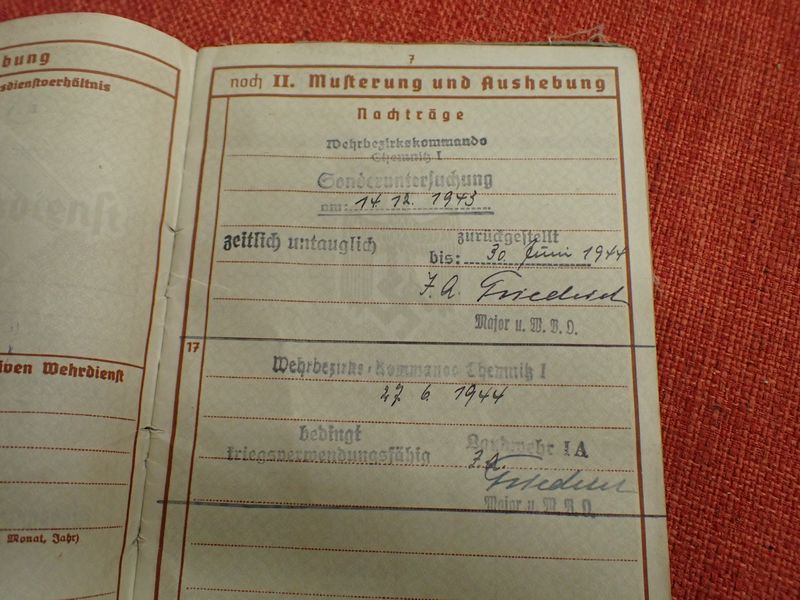 bung
sdienstverhältnis
iven Wehrdienst
Monat, Jahr)
7
noch II. Musterung und Aushebung
Nachträge
Wehrbezirkskommando
Chemnitz I
Sonderuntersuchung
am: 14. 12. 1943
zeitlich untauglich
zurückgestellt
bis: 30. Juni 1944
J. A. Friedrich
Major u. W. B. O.
17
Wehrbezirks-Kommando Chemnitz I
27. 6. 1944
bedingt
kriegsverwendungsfähig
Landwehr IA
J. A.
Friedrich
Major u. W. B. O.